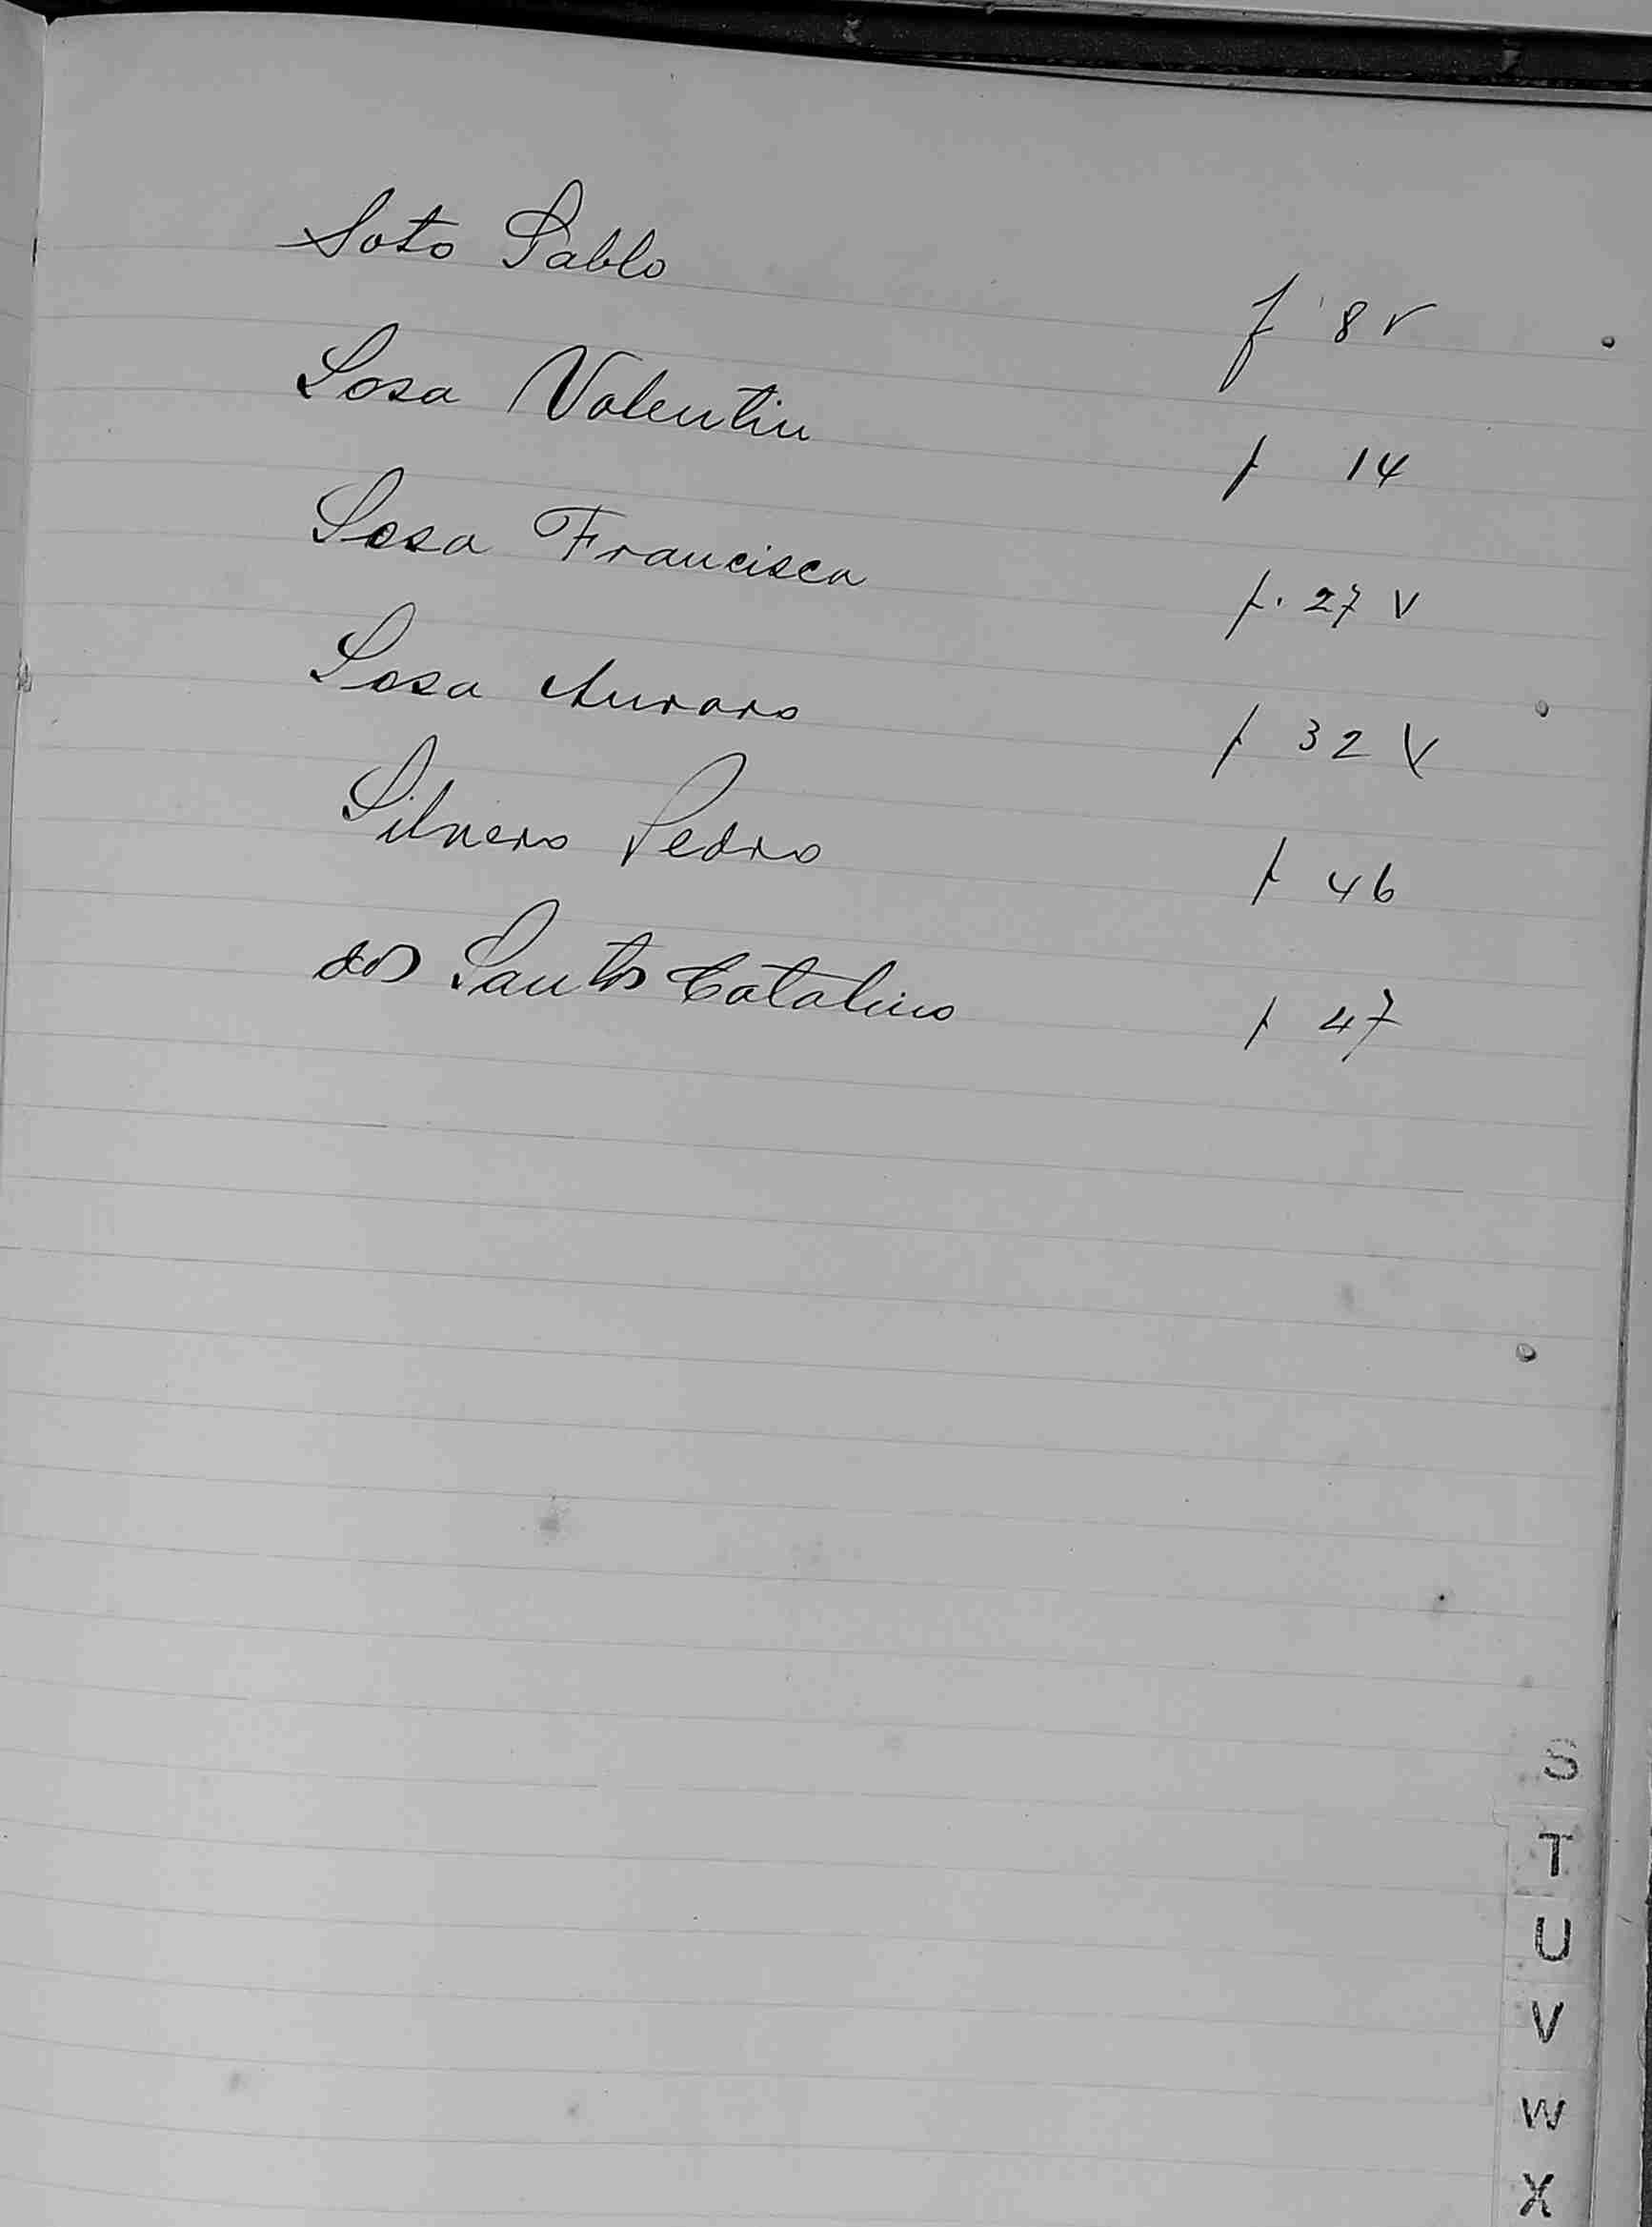 Soto Pablo f 8 v
Sosa Valentin f 14
Sosa Francisca f. 27 V
Sosa f 32 V
Silvero Pedro f 46
dos Santos Catalino f 47
S
T
U
V
W
X